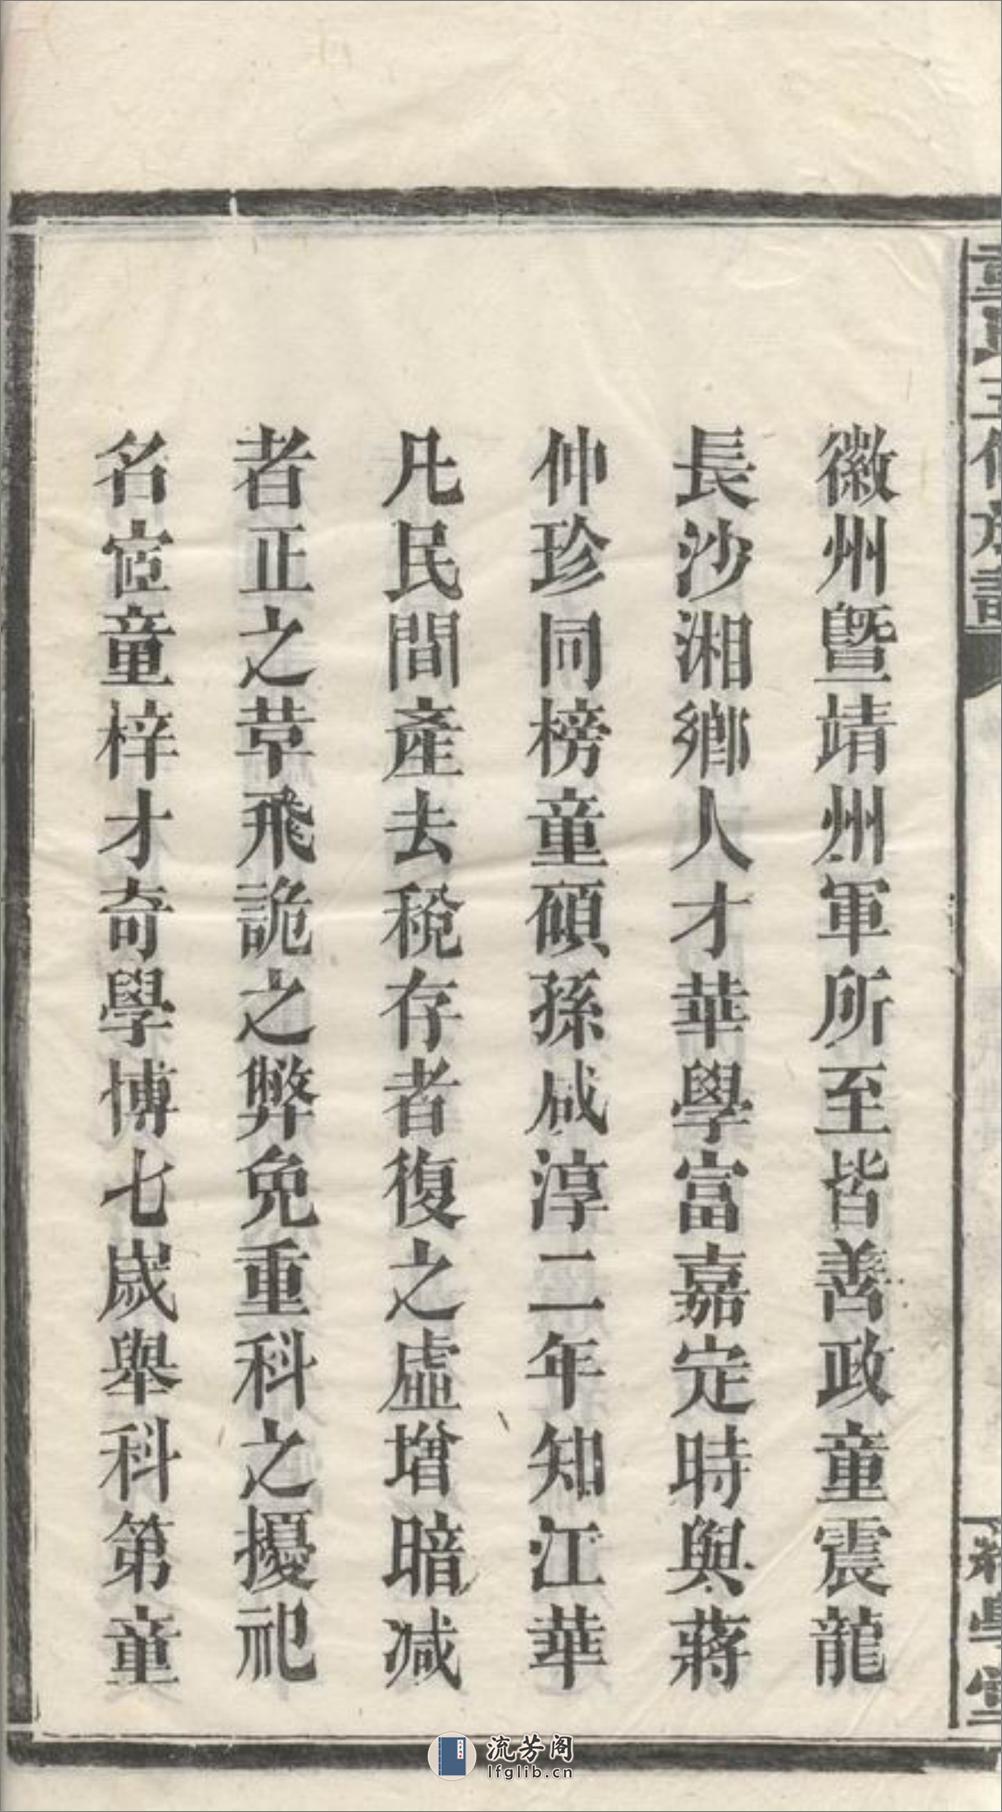 徽州曁靖州軍所至皆善政童震龍
長沙湘鄉人才華學富嘉定時與蔣
仲珍同榜童碩孫咸淳二年知江華
凡民間產去稅存者復之虛增暗减
者正之革飛詭之弊免重科之擾祀
名宦童梓才奇學博七歲舉科第童
流芳阁
lfglib.cn